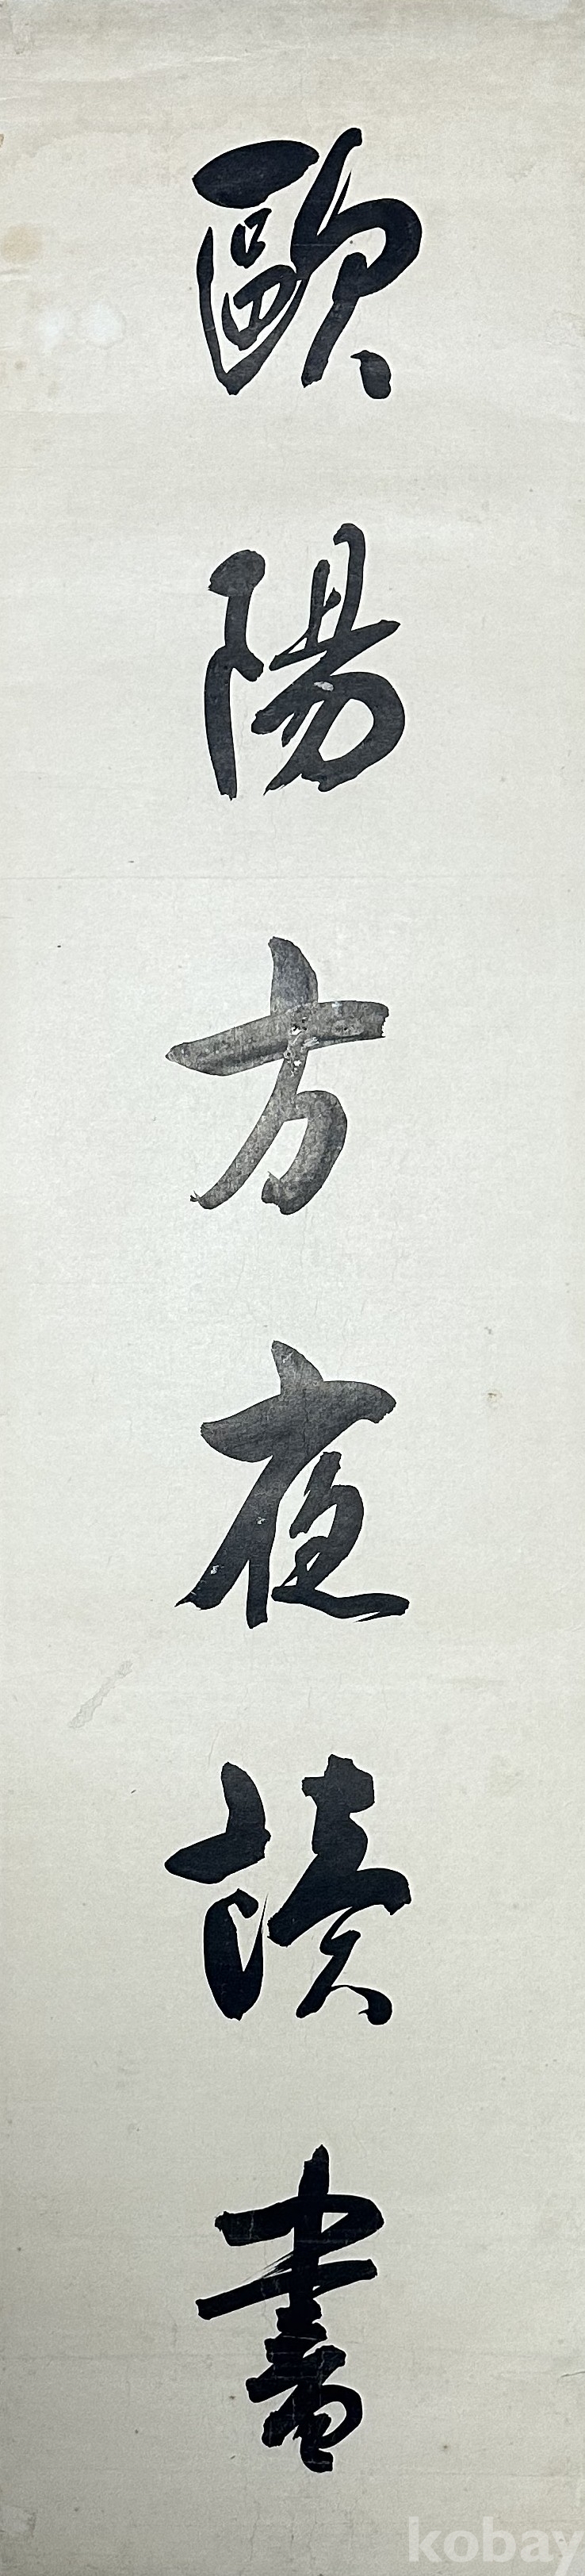 歐陽方夜讀書
kobay